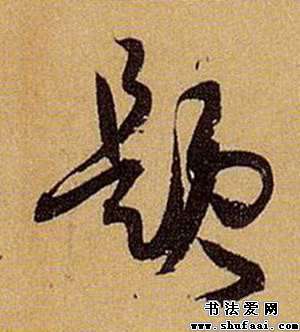 题
书法爱网
www.shufaai.com